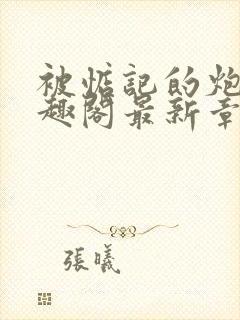 被惦記的炮
趣閣最新章
張曦